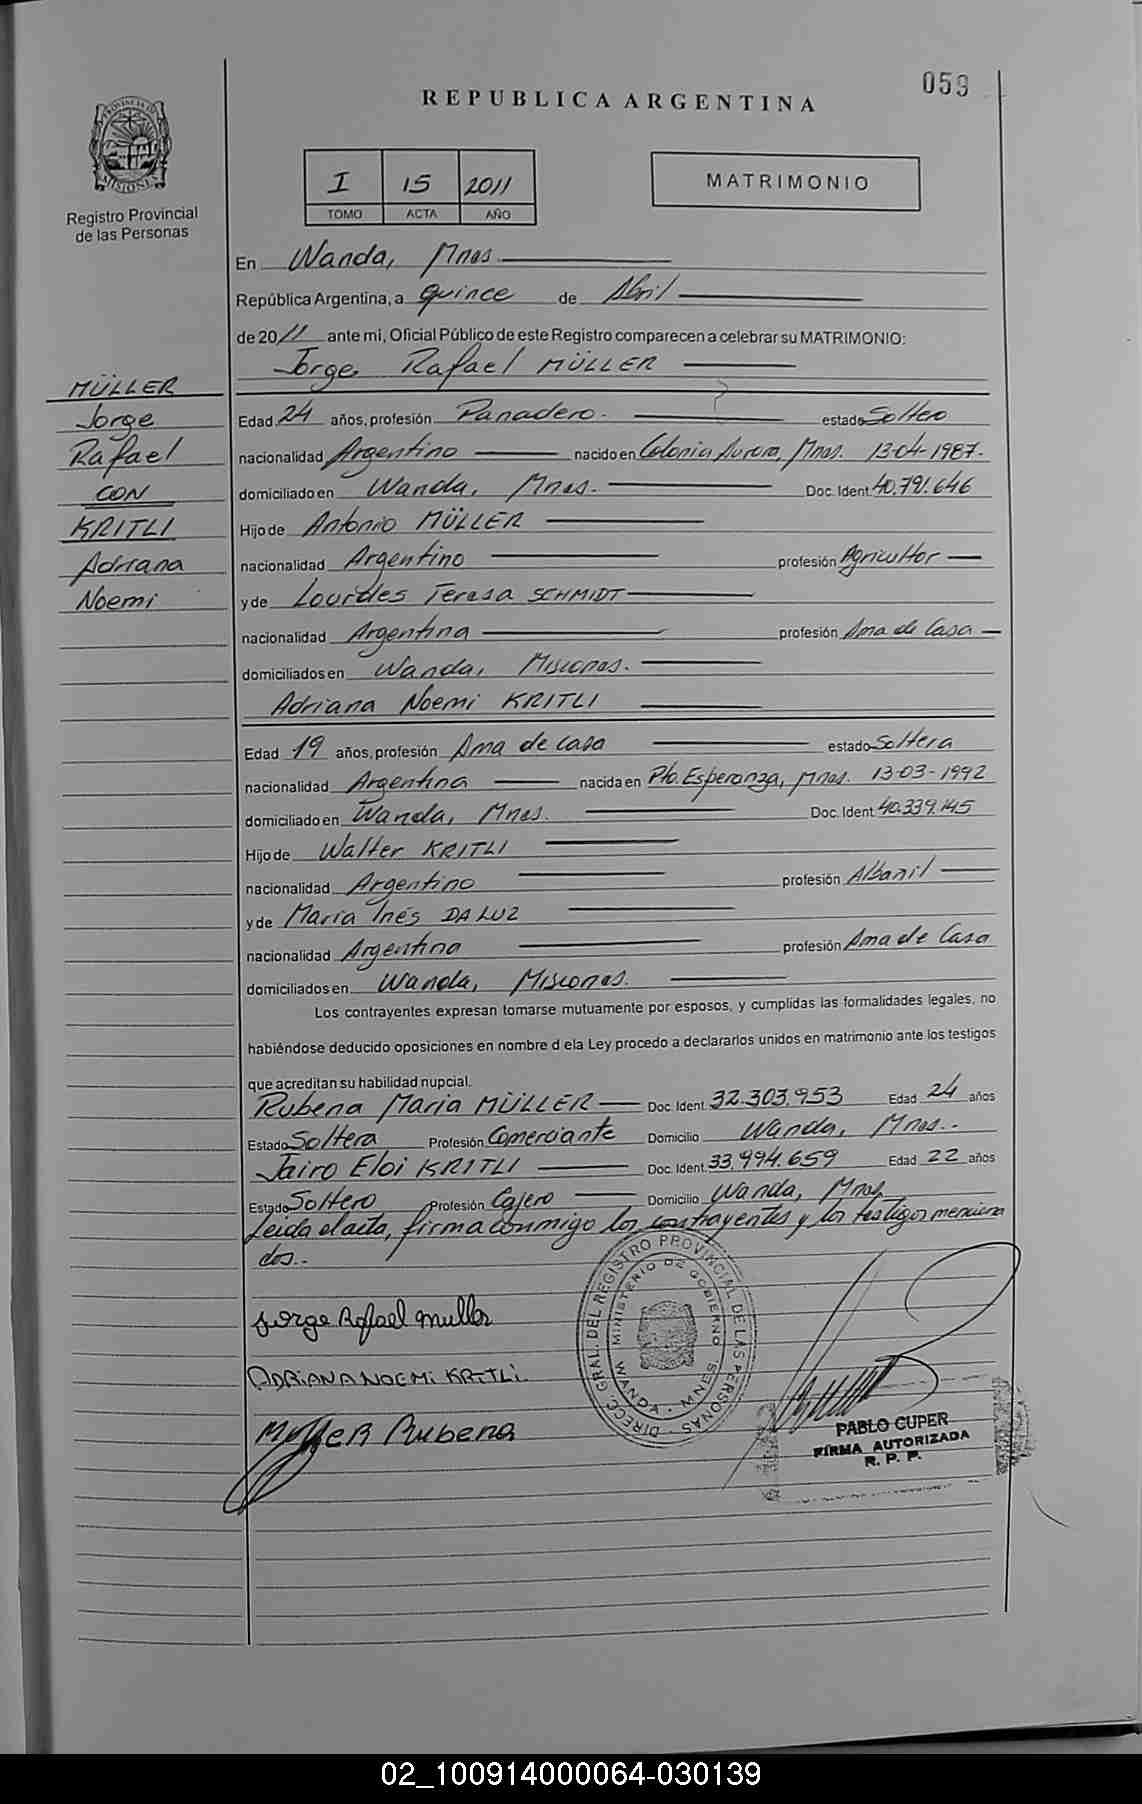 059
REPUBLICA ARGENTINA
PROVINCIA DE
MISIONES
Registro Provincial
de las Personas
I 15 2011
TOMO ACTA AÑO
MATRIMONIO
En Wanda, Mnes
República Argentina, a quince de Abril
de 2011 ante mi, Oficial Público de este Registro comparecen a celebrar su MATRIMONIO:
Jorge Rafael MÜLLER
MÜLLER
Jorge
Rafael
CON
KRITLI
Adriana
Noemi
Edad 24 años, profesión Panadero. estado Soltero
nacionalidad Argentino nacido en Colonia Aurora, Mnes. 13-04-1987.
domiciliado en Wanda, Mnes. Doc. Ident. 40.791.646
Hijo de Antonio MÜLLER
nacionalidad Argentino profesión Agricultor
y de Lourdes Teresa SCHMIDT
nacionalidad Argentina profesión Ama de Casa
domiciliados en Wanda, Misiones.
Adriana Noemi KRITLI
Edad 19 años, profesión Ama de casa estado Soltera
nacionalidad Argentina nacida en Pto. Esperanza, Mnes. 13-03-1992
domiciliado en Wanda, Mnes. Doc. Ident. 40.339.145
Hijo de Walter KRITLI
nacionalidad Argentino profesión Albañil
y de Maria Inés DA LUZ
nacionalidad Argentina profesión Ama de Casa
domiciliados en Wanda, Misiones.
Los contrayentes expresan tomarse mutuamente por esposos, y cumplidas las formalidades legales, no
habiéndose deducido oposiciones en nombre d ela Ley procedo a declararlos unidos en matrimonio ante los testigos
que acreditan su habilidad nupcial.
Rubena Maria MÜLLER Doc. Ident. 32.303.953 Edad 24 años
Estado Soltera Profesión Comerciante Domicilio Wanda, Mnes.
Jairo Eloi KRITLI Doc. Ident. 33.994.659 Edad 22 años
Estado Soltero Profesión Cajero Domicilio Wanda, Mnes
Leida el acta, firma conmigo los contrayentes y los testigos menciona
dos.-
Jorge Rafael muller
ADRIANA NOEMi KRITLi.
Muller Rubena
DIRECC. GRAL. DEL REGISTRO PROVINCIAL DE LAS PERSONAS
MINISTERIO DE GOBIERNO
WANDA - MNES
PABLO CUPER
FIRMA AUTORIZADA
R. P. P.
02_100914000064-030139